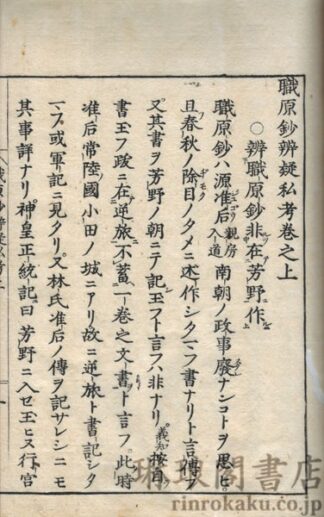 職原鈔辨疑私考卷之上
○辨職原鈔非在芳野作
職原鈔ハ源准后親房入道南朝ノ政事廢ナンコトヲ思ヒ
且春秋ノ除目ノタメニ述作シタマフ書ナリト言傳フ
又其書ヲ芳野ノ朝ニテ記玉フト言フハ非ナリ義知按自
書玉フ跋ニ在逆旅不蓄一卷之文書ト言フ此時
准后常陸國小田ノ城ニアリ故ニ逆旅ト書記シタ
マフ或軍記ニ見タリ又林氏准后ノ傳ヲ記サレシニモ
其事詳ナリ神皇正統記曰芳野ニ入セ玉ヒス行宮
琳琅閣書店
rinrokaku.co.jp